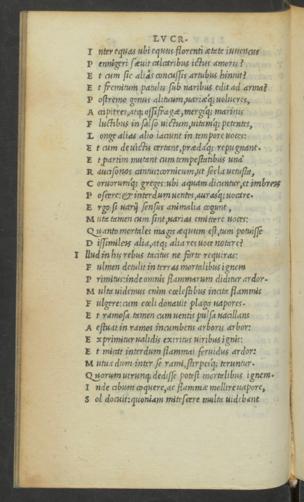 LVCR.
I nter equas ubi equus florenti ætate iuuencus
P ennigeri sæuit calcaribus ictus amoris?
E t cum sic aliàs concussis artubus hinnit?
E t fremitum patulis sub naribus edit ad arma?
P ostremo genus alituum, uariæq; uolucres,
A ccipitres, atq; ossifragæ, mergiq; marinis
F luctibus in salso uictum, uitamq; petentes,
L onge alias alio iaciunt in tempore uoces:
E t cum de uictu certant, prædaq; repugnant.
E t partim mutant cum tempestatibus una
R aucisonos cantus: cornicum, ut secla uetusta,
C oruorumq; greges: ubi aquam dicuntur, et imbreis
P oscere: et interdum uentos, aurasq; uocare.
E rgo si uarij sensus animalia cogunt,
M uta tamen cum sint, uarias emittere uoces:
Q uanto mortales magis æquum est, tum potuisse
D issimileis alia, atq; alia res uoce notare?
I llud in his rebus tacitus ne forte requiras:
F ulmen detulit in terras mortalibus ignem
P rimitus: inde omnis flammarum diditur ardor.
M ulta uidemus enim cœlestibus incita flammis
F ulgere: cum cœli donauit plaga uapores.
E t ramosa tamen cum uentis pulsa uacillans
A estuat in ramos incumbens arboris arbor:
E xprimitur ualidis exritus uiribus ignis:
E t micat interdum flammai feruidus ardor:
M utua dum inter se rami, stirpesq; teruntur.
Q uorum utrunq; dedisse potest mortalibus ignem.
I nde cibum coquere, ac flammæ mollire uapore,
S ol docuit: quoniam mitescere multa uidebant